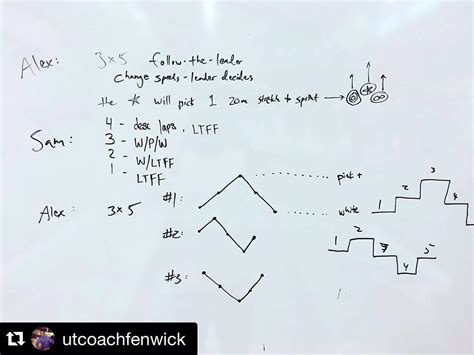 Alex: 3x5 follow-the-leader
change speeds-leader decides
the * will pick 1 20m stretch to sprint
Sam: 4 - desc laps, LTFF
3 - W/P/W
2 - W/LTFF
1 - LTFF
Alex: 3x5
#1: pink +
white
1 2 3 4
#2:
1 2 3 4 5
#3:
utcoachfenwick